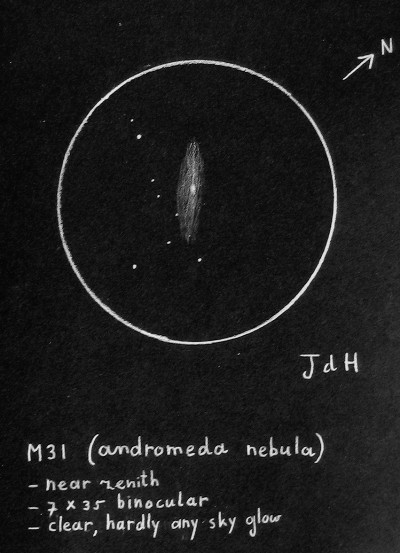 N
JdH
M31 (andromeda nebula)
- near zenith
- 7 x 35 binocular
- clear, hardly any sky glow